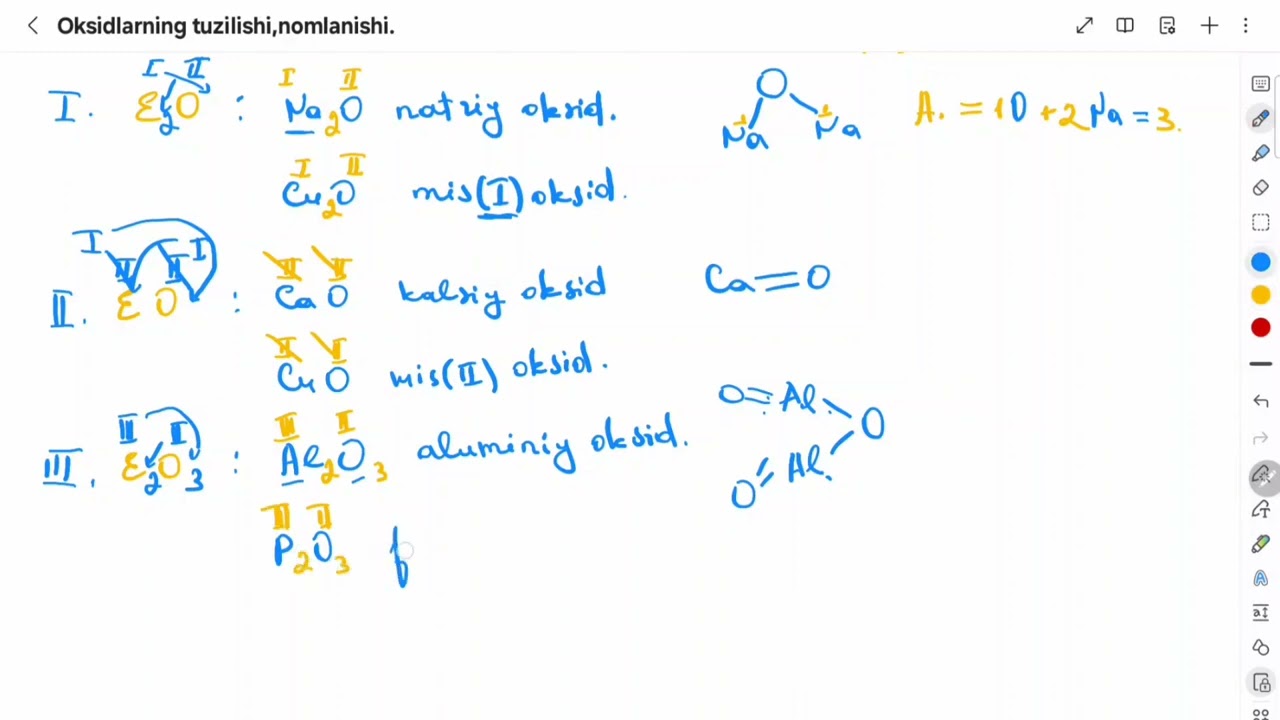 Oksidlarning tuzilishi,nomlanishi.
I II I II
I. E2O : Na2O natriy oksid. O Na Na A. = 1O + 2Na = 3.
I II
Cu2O mis(I) oksid.
I I II II
II. E O : CaO kalsiy oksid Ca=O
II II
CuO mis(II) oksid.
III II III II
III. E2O3 : Al2O3 aluminiy oksid. O=Al O
O=Al
III II
P2O3 f